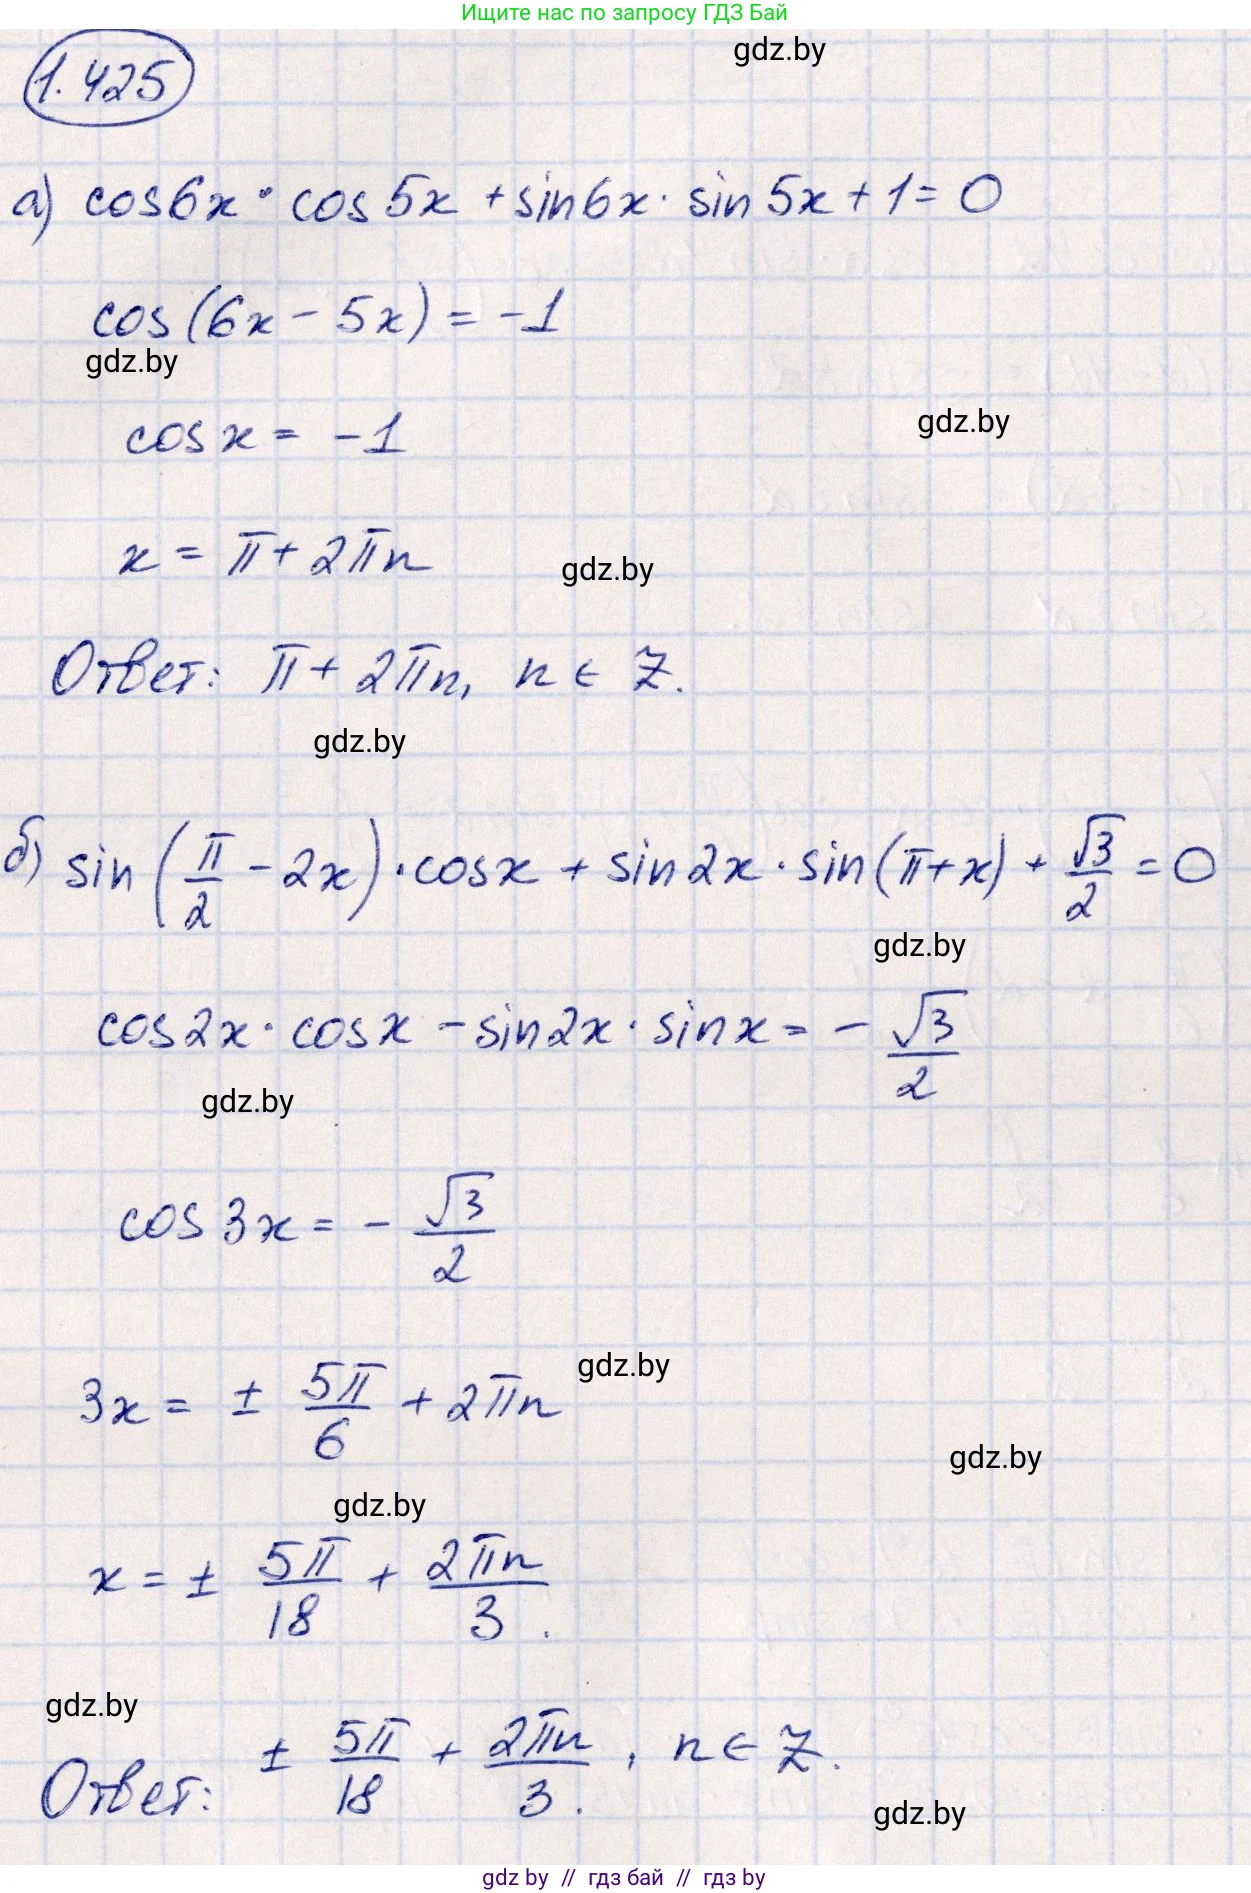 Ищите нас по запросу ГДЗ Бай
gdz.by
1.425
а) cos6x · cos5x + sin6x · sin5x + 1 = 0
cos(6x - 5x) = -1
gdz.by
gdz.by
cosx = -1
x = π + 2πn
gdz.by
Ответ: π + 2πn, n ∈ Z.
gdz.by
б) sin(π/2 - 2x) · cosx + sin2x · sin(π+x) + √3/2 = 0
gdz.by
cos2x · cosx - sin2x · sinx = - √3/2
gdz.by
cos3x = - √3/2
gdz.by
3x = ± 5π/6 + 2πn
gdz.by
gdz.by
x = ± 5π/18 + 2πn/3.
gdz.by
Ответ: ± 5π/18 + 2πn/3., n ∈ Z.
gdz.by
gdz by // гдз бай // гдз by